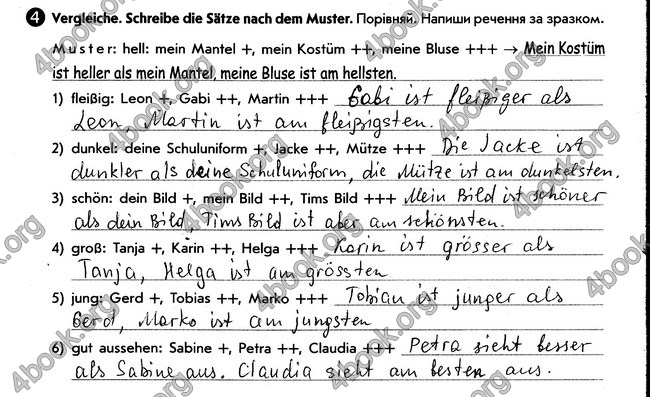 4 Vergleiche. Schreibe die Sätze nach dem Muster. Порівняй. Напиши речення за зразком.
Muster: hell: mein Mantel +, mein Kostüm ++, meine Bluse +++ → Mein Kostüm
ist heller als mein Mantel, meine Bluse ist am hellsten.
1) fleißig: Leon +, Gabi ++, Martin +++ Gabi ist fleißiger als
Leon, Martin ist am fleißigsten.
2) dunkel: deine Schuluniform +, Jacke ++, Mütze +++ Die Jacke ist
dunkler als deine Schuluniform, die Mütze ist am dunkelsten.
3) schön: dein Bild +, mein Bild ++, Tims Bild +++ Mein Bild ist schöner
als dein Bild, Tims Bild ist aber am schönsten.
4) groß: Tanja +, Karin ++, Helga +++ Karin ist grösser als
Tanja, Helga ist am grössten
5) jung: Gerd +, Tobias ++, Marko +++ Tobian ist junger als
Gerd, Marko ist am jungsten
6) gut aussehen: Sabine +, Petra ++, Claudia +++ Petra sieht besser
als Sabine aus. Claudia sieht am besten aus.
4book.org
4book.org
4book.org
4book.org
4book.org
4book.org
4book.org
4book.org